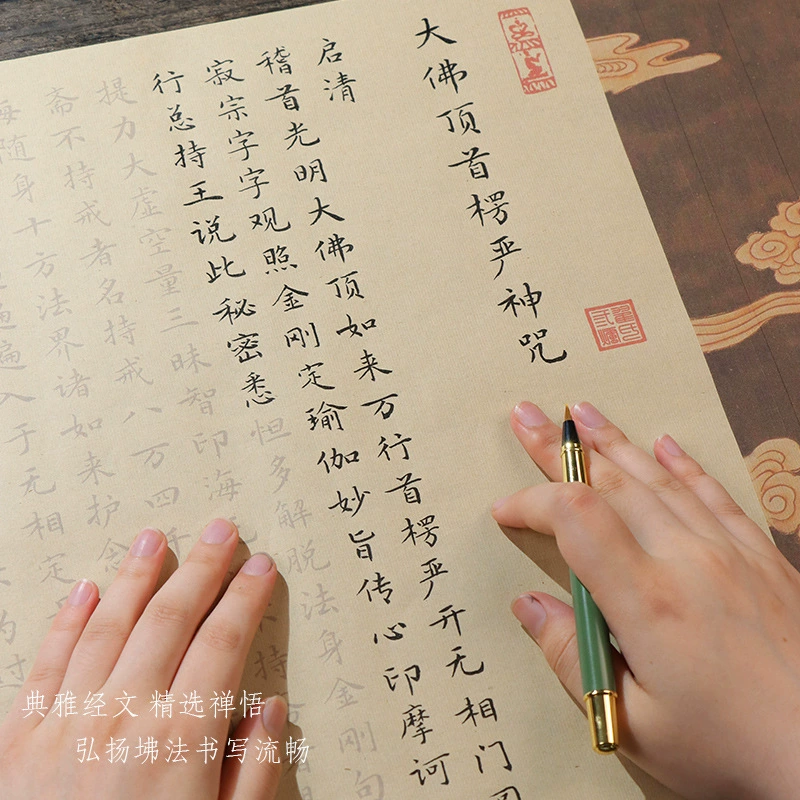 大佛顶首楞严神咒
启清
稽首光明大佛顶如来万行首楞严开无相门圆
寂宗字字观照金刚定瑜伽妙旨传心印摩诃
行总持王说此秘密悉怛多解脱法身金刚句
提力大虚空量三昧智印海无持
斋不持戒者名持戒八万四千
随身十方法界诸如来护念
遍入于无相定
为过
典雅经文 精选禅悟
弘扬坲法书写流畅